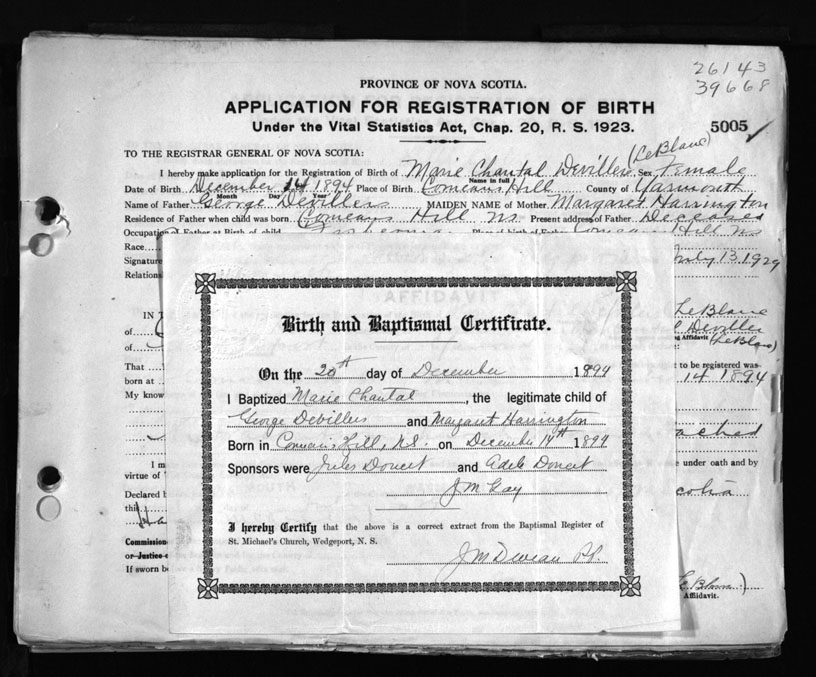 26143
39668
PROVINCE OF NOVA SCOTIA.
APPLICATION FOR REGISTRATION OF BIRTH
Under the Vital Statistics Act, Chap. 20, R. S. 1923.
5005
TO THE REGISTRAR GENERAL OF NOVA SCOTIA:
(LeBlanc)
I hereby make application for the Registration of Birth of Marie Chantal Devillers Sex Female
Name in full
Date of Birth December 14 1894 Place of Birth Comeaus Hill County of Yarmouth
Month Day Year
Name of Father George Devillers MAIDEN NAME of Mother Margaret Harrington
Residence of Father when child was born Comeaus Hill NS Present address of Father Deceased
Occupation of Father at Birth of child Place of birth of Father Hill NS
Race
Signature July 13 1929
Relations
AFFIDAVIT
IN T LeBlanc
of Deviller
of ng Affidavit (LeBlanc)
That t to be registered was
born at 14 1894
My know
ached
I m e under oath and by
virtue of
Declared b
thi
Commission
or Justice
If sworn b LeBlanc)
Affidavit.
Birth and Baptismal Certificate.
On the 20th day of December 1894
I Baptized Marie Chantal, the legitimate child of
George Devillers and Margaret Harrington
Born in Comeau's Hill, N.S. on December 14th 1894
Sponsors were Jules Doucet and Adele Doucet
J M Gay
I hereby Certify that the above is a correct extract from the Baptismal Register of
St. Michael's Church, Wedgeport, N. S.